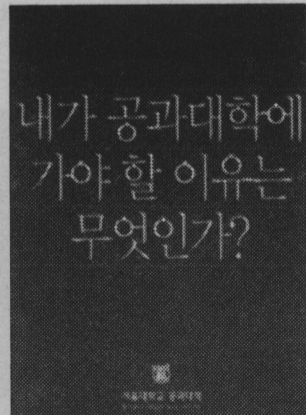 내가 공과대학에
가야 할 이유는
무엇인가?
서울대학교 공과대학